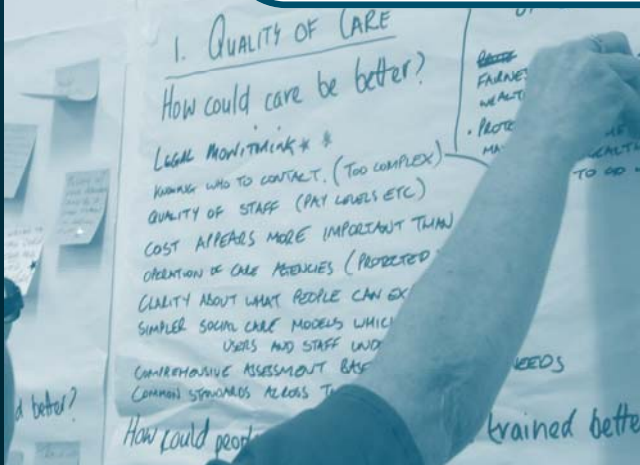 1. QUALITY OF CARE
How could care be better?
LEGAL MONITORING * *
KNOWING WHO TO CONTACT. (TOO COMPLEX)
QUALITY OF STAFF (PAY LEVELS ETC)
COST APPEARS MORE IMPORTANT THAN
OPERATION OF CARE AGENCIES (PROTECTED
CLARITY ABOUT WHAT PEOPLE CAN EX
SIMPLER SOCIAL CARE MODELS WHIC
USERS AND STAFF UND
COMPREHENSIVE ASSESSMENT BAS NEEDS
COMMON STANDARDS ACROSS T
How could peop trained bette
d better?
FAIRNE
WEALT
• PROTE
TO DO